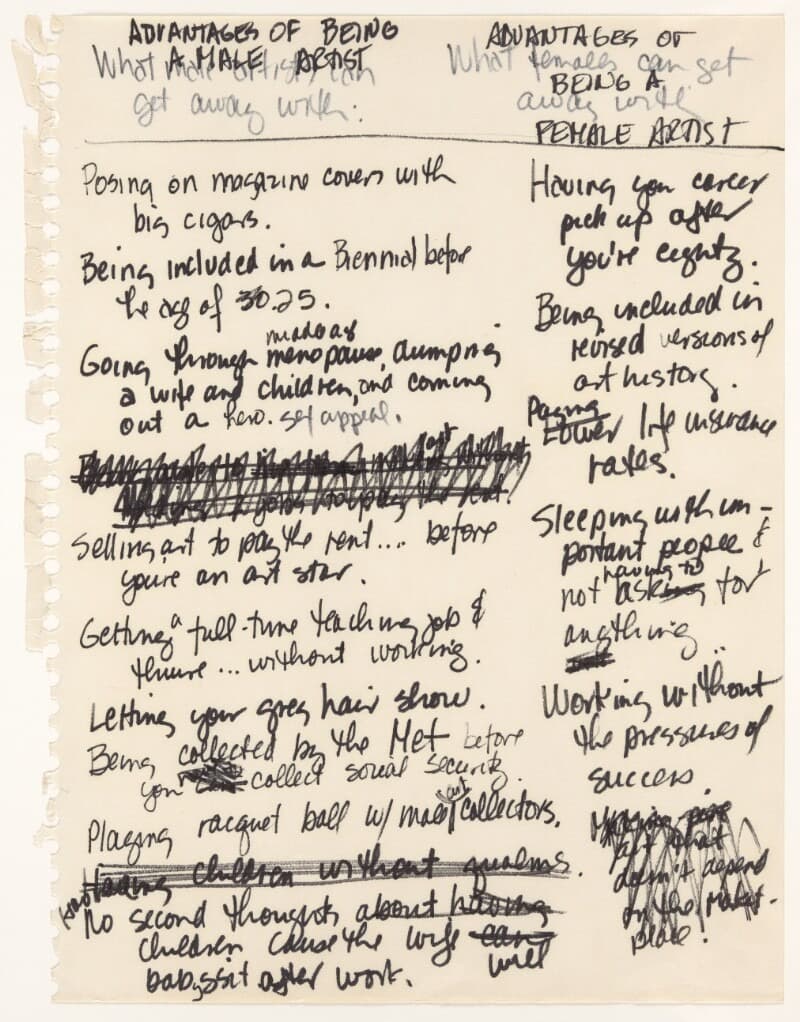 ADVANTAGES OF BEING
A MALE ARTIST
What male artists can
get away with:
Posing on magazine covers with
big cigars.
Being included in a Biennial before
the age of 30.25.
Going through menopause, dumping
a wife and children, and coming
out a hero. sex appeal.
Selling art to pay the rent.... before
you're an art star.
Getting a full-time teaching job &
tenure... without working.
Letting your grey hair show.
Being collected by the Met before
you collect social security.
Playing racquet ball w/ male art collectors.
Having children without qualms.
No second thoughts about having
children cause the wife can
will
babysit after work.
ADVANTAGES OF
BEING A
FEMALE ARTIST
What females can get
away with
Having your career
pick up after
you're eighty.
Being included in
revised versions of
art history.
Paying
Lower life insurance
rates.
Sleeping with im-
portant people &
having to
not asking for
anything..
Working without
the pressures of
success.
Making pure
art that
doesn't depend
on the market-
place.